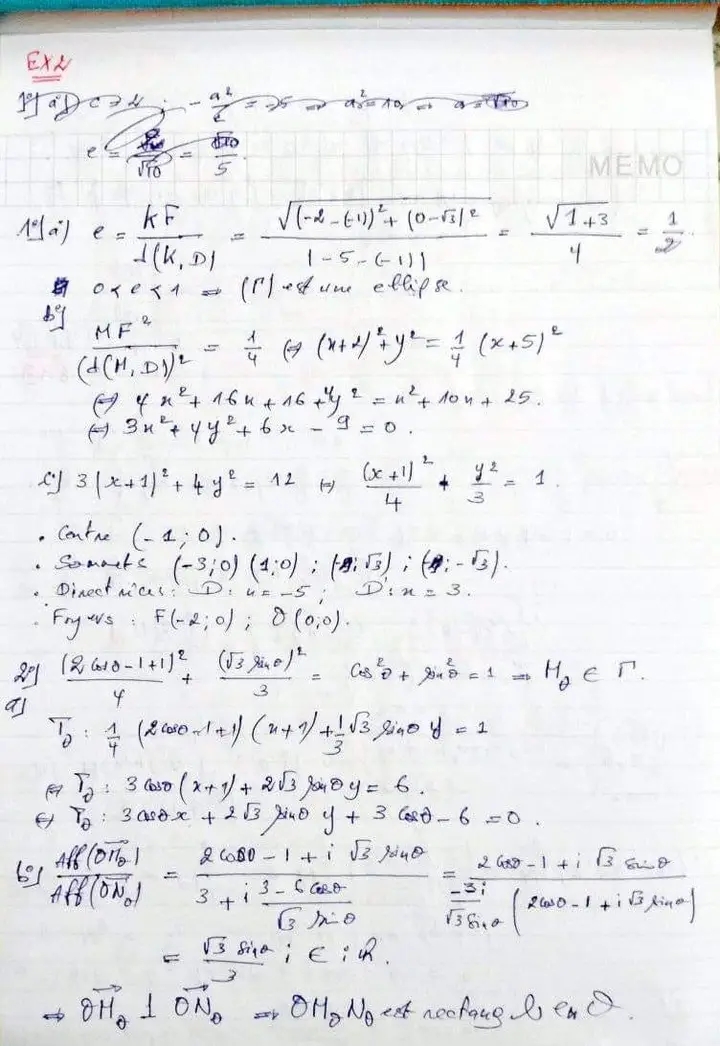 EX2
1°/a°) c = 2 ; - a²/c = -5 ⇒ a² = 10 ⇒ a = √10
e = 2/√10 = √10/5.
MEMO
1°/a°) e = KF/d(K,D) = √((-2-(-1))² + (0-√3)²)/|-5-(-1)| = √(1+3)/4 = 1/2.
0 < e < 1 ⇒ (Γ) est une ellipse.
b°) MF²/(d(M,D))² = 1/4 ⇔ (x+2)² + y² = 1/4 (x+5)²
⇔ 4x² + 16x + 16 + 4y² = x² + 10x + 25.
⇔ 3x² + 4y² + 6x - 9 = 0.
c°) 3(x+1)² + 4y² = 12 ⇔ (x+1)²/4 + y²/3 = 1.
. Centre (-1;0).
. Sommets (-3;0) (1;0) ; (-1;√3) ; (-1;-√3).
. Directrices : D: x = -5 ; D: x = 3.
. Foyers : F(-2;0) ; O(0;0).
2°) a) (2cosθ-1+1)²/4 + (√3 sinθ)²/3 = cos²θ + sin²θ = 1 ⇒ M_θ ∈ Γ.
T_θ : 1/4 (2cosθ-1+1)(x+1) + 1/3 √3 sinθ y = 1
⇔ T_θ : 3cosθ(x+1) + 2√3 sinθ y = 6.
⇔ T_θ : 3cosθ x + 2√3 sinθ y + 3cosθ - 6 = 0.
b°) Aff(OM_θ)/Aff(ON_θ) = (2cosθ - 1 + i √3 sinθ)/(3 + i (3-6cosθ)/(√3 sinθ)) = (2cosθ - 1 + i √3 sinθ)/(-3i/(√3 sinθ) (2cosθ - 1 + i√3 sinθ))
= √3 sinθ/3 i ∈ iℝ.
⇒ OM_θ ⊥ ON_θ ⇒ OM_θN_θ est rectangle en O.